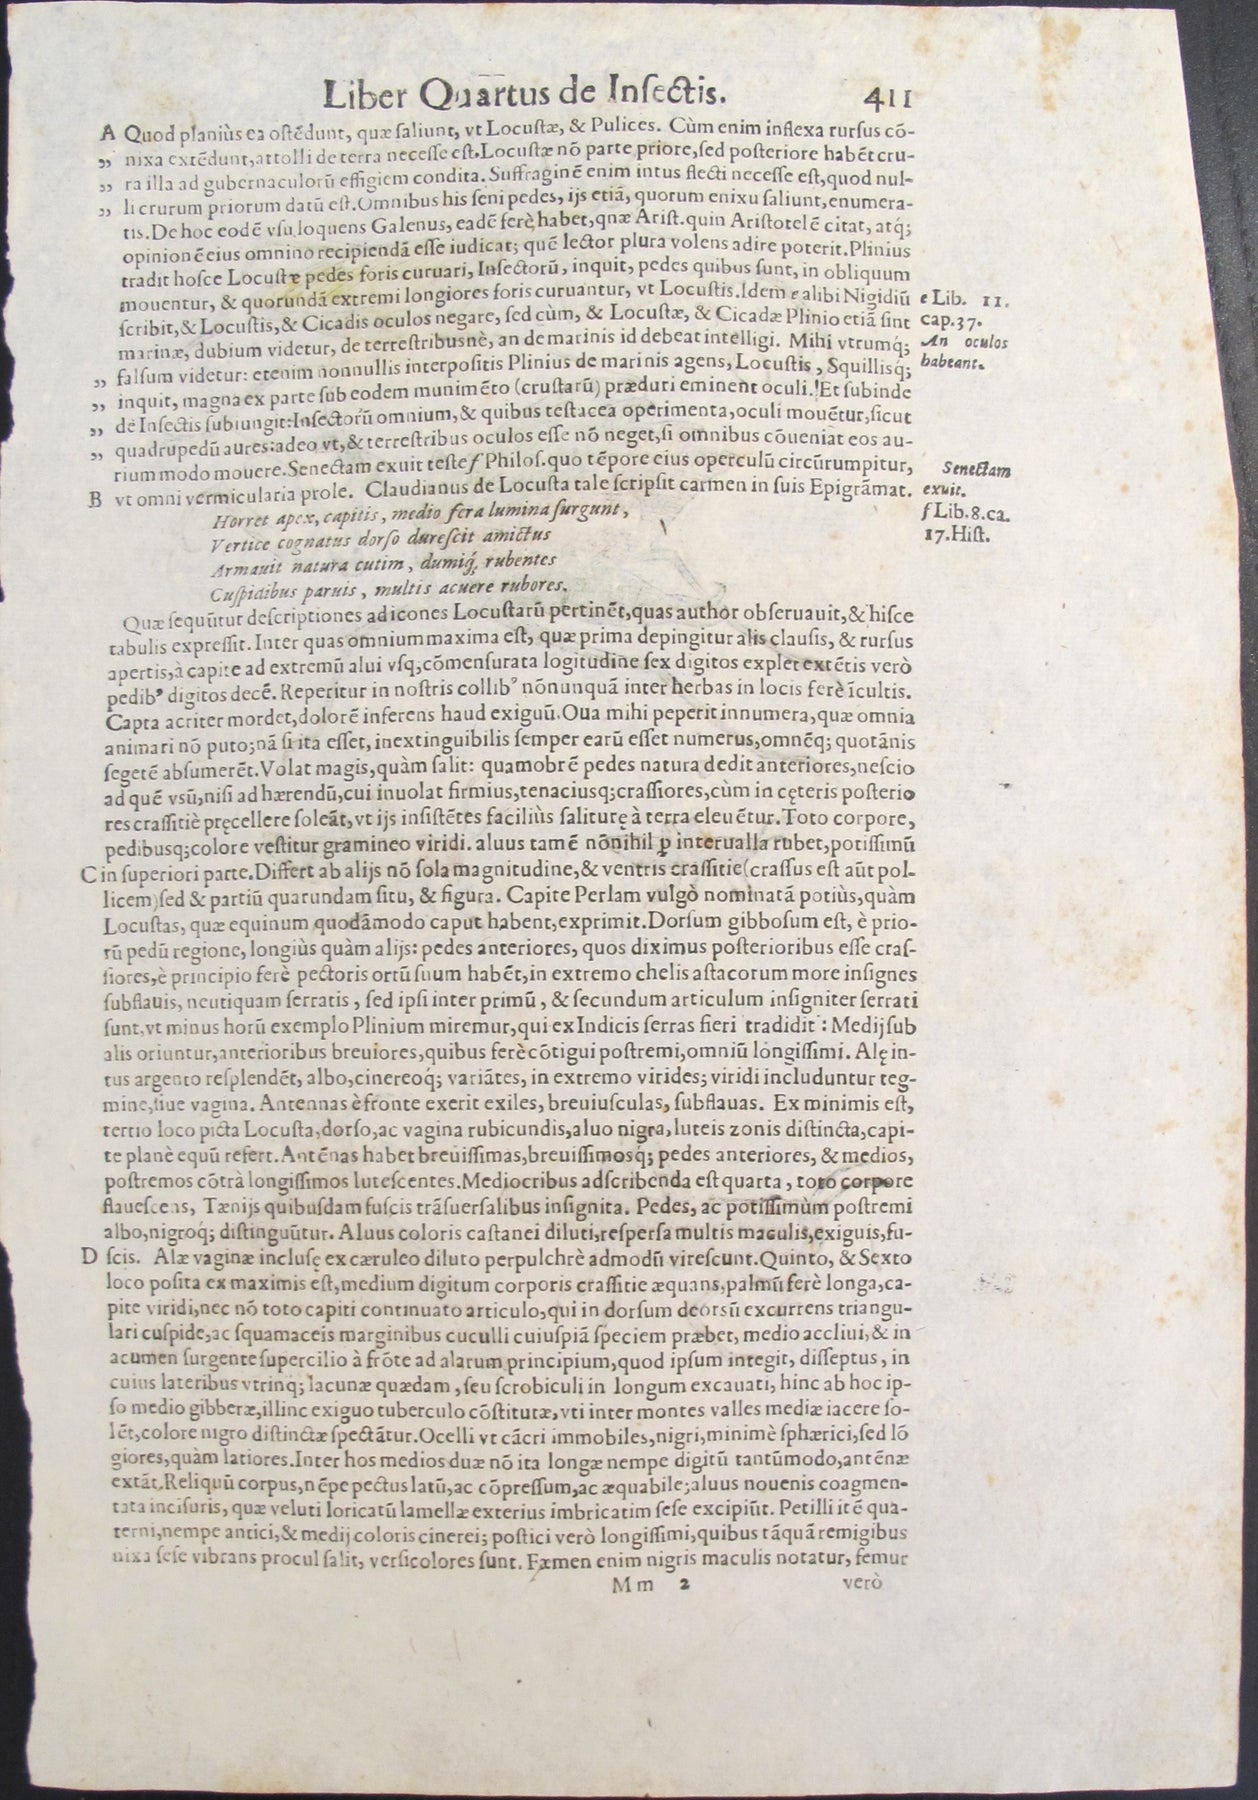 Liber Quartus de Insectis. 411
A Quod planiùs ea ostẽdunt, quæ saliunt, vt Locustæ, & Pulices. Cùm enim inflexa rursus cõ-
„ nixa extẽdunt, attolli de terra necesse est. Locustæ nõ parte priore, sed posteriore habẽt cru-
„ ra illa ad gubernaculorũ effigiem condita. Suffraginẽ enim intus flecti necesse est, quod nul-
„ li crurum priorum datũ est. Omnibus his seni pedes, ijs etiã, quorum enixu saliunt, enumera-
tis. De hoc eodẽ vsu loquens Galenus, eadẽ ferè habet, qnæ Arist. quin Aristotelẽ citat, atq́;
opinionẽ eius omnino recipiendã esse iudicat; quẽ lector plura volens adire poterit. Plinius
tradit hosce Locustæ pedes foris curuari, Insectorũ, inquit, pedes quibus sunt, in obliquum
mouentur, & quorundã extremi longiores foris curuantur, vt Locustis. Idem e alibi Nigidiũ
scribit, & Locustis, & Cicadis oculos negare, sed cùm, & Locustæ, & Cicadæ Plinio etiã sint
marinæ, dubium videtur, de terrestribusnè, an de marinis id debeat intelligi. Mihi vtrumq́;
„ falsum videtur: etenim nonnullis interpositis Plinius de marinis agens, Locustis, Squillisq́;
„ inquit, magna ex parte sub eodem munimẽto (crustarũ) præduri eminent oculi. Et subinde
„ de Insectis subiungit: Insectorũ omnium, & quibus testacea operimenta, oculi mouẽtur, sicut
„ quadrupedũ aures: adeo vt, & terrestribus oculos esse nõ neget, si omnibus cõueniat eos au-
rium modo mouere. Senectam exuit teste f Philos. quo tẽpore eius operculũ circũrumpitur,
B vt omni vermicularia prole. Claudianus de Locusta tale scripsit carmen in suis Epigrãmat.
e Lib. 11.
cap. 37.
An oculos
habeant.
Senectam
exuit.
f Lib. 8. ca.
17. Hist.
Horret apex, capitis, medio fera lumina surgunt,
Vertice cognatus dorso durescit amictus
Armauit natura cutim, dumiq́, rubentes
Cuspidibus paruis, multis acuere rubores.
Quæ sequũtur descriptiones ad icones Locustarũ pertinẽt, quas author obseruauit, & hisce
tabulis expressit. Inter quas omnium maxima est, quæ prima depingitur alis clausis, & rursus
apertis, à capite ad extremũ alui vsq; cõmensurata lõgitudine sex digitos explet extẽtis verò
pedibꝰ digitos decẽ. Reperitur in nostris collibꝰ nõnunquã inter herbas in locis ferè ĩcultis.
Capta acriter mordet, dolorẽ inferens haud exiguũ. Oua mihi peperit innumera, quæ omnia
animari nõ puto; nã si ita esset, inextinguibilis semper earũ esset numerus, omnẽq; quotãnis
segetẽ absumerẽt. Volat magis, quàm salit: quamobrẽ pedes natura dedit anteriores, nescio
ad quẽ vsũ, nisi ad hærendũ, cui inuolat firmius, tenaciusq; crassiores, cùm in cęteris posterio
res crassitiè pręcellere soleãt, vt ijs insistẽtes faciliùs saliturę à terra eleuẽtur. Toto corpore,
pedibusq; colore vestitur gramineo viridi. aluus tamẽ nõnihil ꝑ interualla rubet, potissimũ
C in superiori parte. Differt ab alijs nõ sola magnitudine, & ventris crassitie (crassus est aũt pol-
licem) sed & partiũ quarundam situ, & figura. Capite Perlam vulgò nominatã potiùs, quàm
Locustas, quæ equinum quodãmodo caput habent, exprimit. Dorsum gibbosum est, è prio-
rũ pedũ regione, longiùs quàm alijs: pedes anteriores, quos diximus posterioribus esse cras-
siores, è principio ferè pectoris ortũ suum habẽt, in extremo chelis astacorum more insignes
subflauis, neutiquam serratis, sed ipsi inter primũ, & secundum articulum insigniter serrati
sunt, vt minus horũ exemplo Plinium miremur, qui ex Indicis serras fieri tradidit: Medij sub
alis oriuntur, anterioribus breuiores, quibus ferè cõtigui postremi, omniũ longissimi. Alę in-
tus argento resplendẽt, albo, cinereoq́; variãtes, in extremo virides; viridi includuntur teg-
mine, siue vagina. Antennas è fronte exerit exiles, breuiusculas, subflauas. Ex minimis est,
tertio loco picta Locusta, dorso, ac vagina rubicundis, aluo nigra, luteis zonis distincta, capi-
te planè equũ refert. Antẽnas habet breuissimas, breuissimosq́; pedes anteriores, & medios,
postremos cõtrà longissimos lutescentes. Mediocribus adscribenda est quarta, toto corpore
flauescens, Tænijs quibusdam fuscis trãsuersalibus insignita. Pedes, ac potissimùm postremi
albo, nigroq́; distinguũtur. Aluus coloris castanei diluti, respersa multis maculis, exiguis, fu-
D scis. Alæ vaginæ inclusę ex cæruleo diluto perpulchrè admodũ virescunt. Quinto, & Sexto
loco posita ex maximis est, medium digitum corporis crassitie æquans, palmũ ferè longa, ca-
pite viridi, nec nõ toto capiti continuato articulo, qui in dorsum deorsũ excurrens triangu-
lari cuspide, ac squamaceis marginibus cuculli cuiuspiã speciem præbet, medio accliui, & in
acumen surgente supercilio à frõte ad alarum principium, quod ipsum integit, disseptus, in
cuius lateribus vtrinq; lacunæ quædam, seu scrobiculi in longum excauati, hinc ab hoc ip-
so medio gibberæ, illinc exiguo tuberculo cõstitutæ, vti inter montes valles mediæ iacere so-
lẽt, colore nigro distinctæ spectãtur. Ocelli vt cãcri immobiles, nigri, minimè sphærici, sed lõ
giores, quàm latiores. Inter hos medios duæ nõ ita longæ nempe digitũ tantũmodo, antẽnæ
extãt. Reliquũ corpus, nẽpe pectus latũ, ac cõpressum, ac æquabile; aluus nouenis coagmen-
tata incisuris, quæ veluti loricatũ lamellæ exterius imbricatim sese excipiũt. Petilli itẽ qua-
terni, nempe antici, & medij coloris cinerei; postici verò longissimi, quibus tãquã remigibus
nixa sese vibrans procul salit, versicolores sunt. Fæmen enim nigris maculis notatur, femur
Mm 2 verò